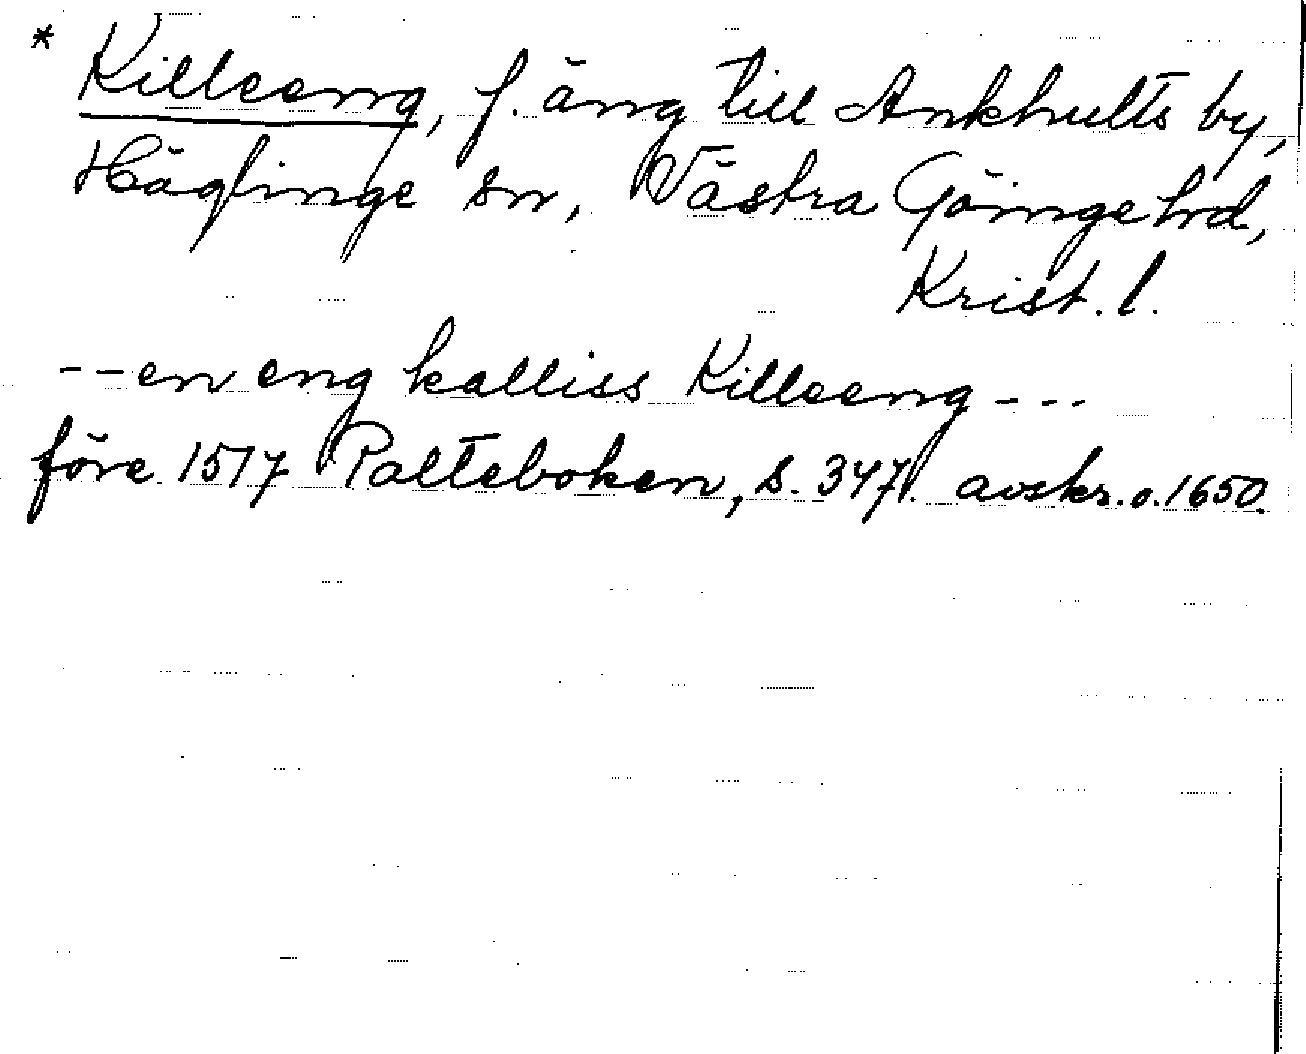 * Killeeng, f. äng till Ankhults by,
Häglinge sn, Västra Göinge hrd,
Krist. l.
-- en eng kalliss Killeeng ---
före 1517 Palteboken, s. 347. avskr. o. 1650.